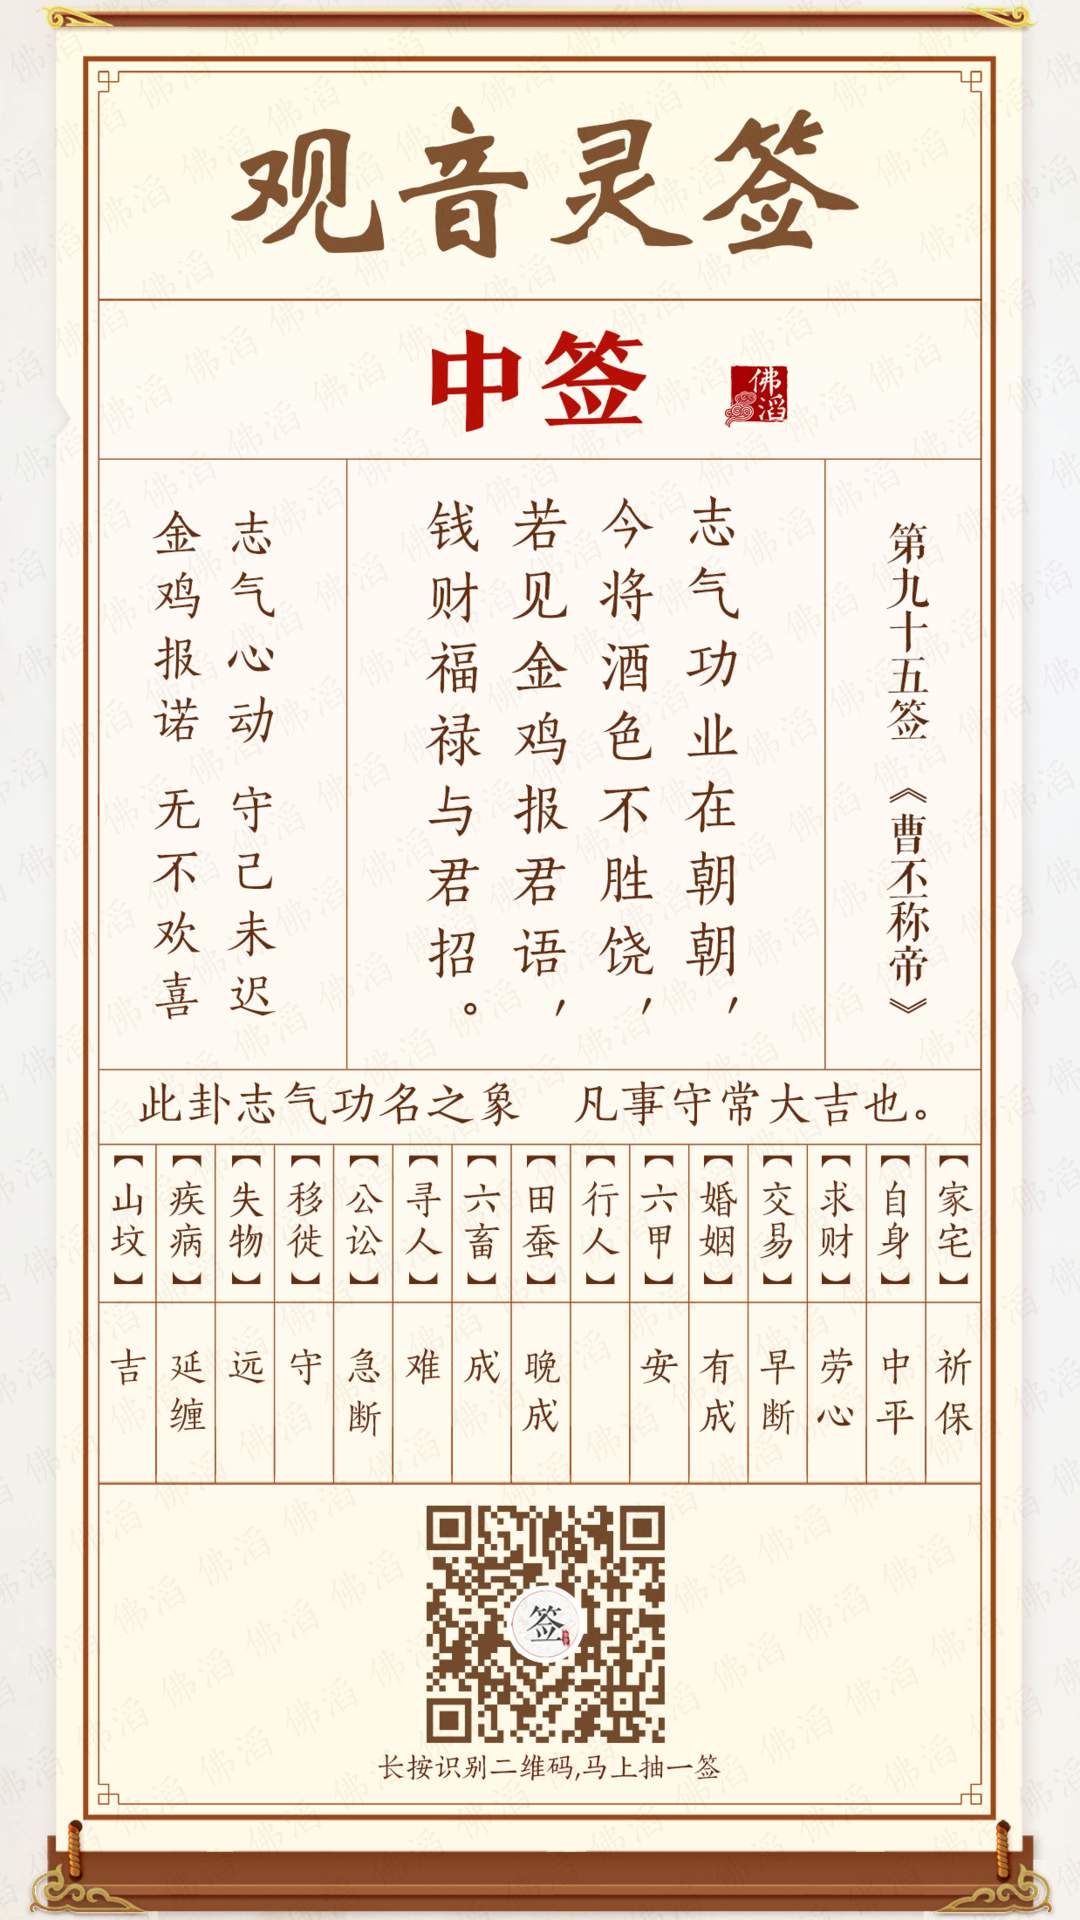 观音灵签
中签
佛滔
第九十五签《曹丕称帝》
志气功业在朝朝，
今将酒色不胜饶，
若见金鸡报君语，
钱财福禄与君招。
志气心动 守己未迟
金鸡报诺 无不欢喜
此卦志气功名之象 凡事守常大吉也。
【家宅】祈保
【自身】中平
【求财】劳心
【交易】早断
【婚姻】有成
【六甲】安
【行人】
【田蚕】晚成
【六畜】成
【寻人】难
【公讼】急断
【移徙】守
【失物】远
【疾病】延缠
【山坟】吉
签
长按识别二维码,马上抽一签